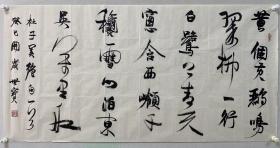 兩個黄鸝鳴
翠柳一行
白鷺上青天
窓含西嶺千
秋雪門泊東
吳萬里船
杜子美絕句一首
癸巳